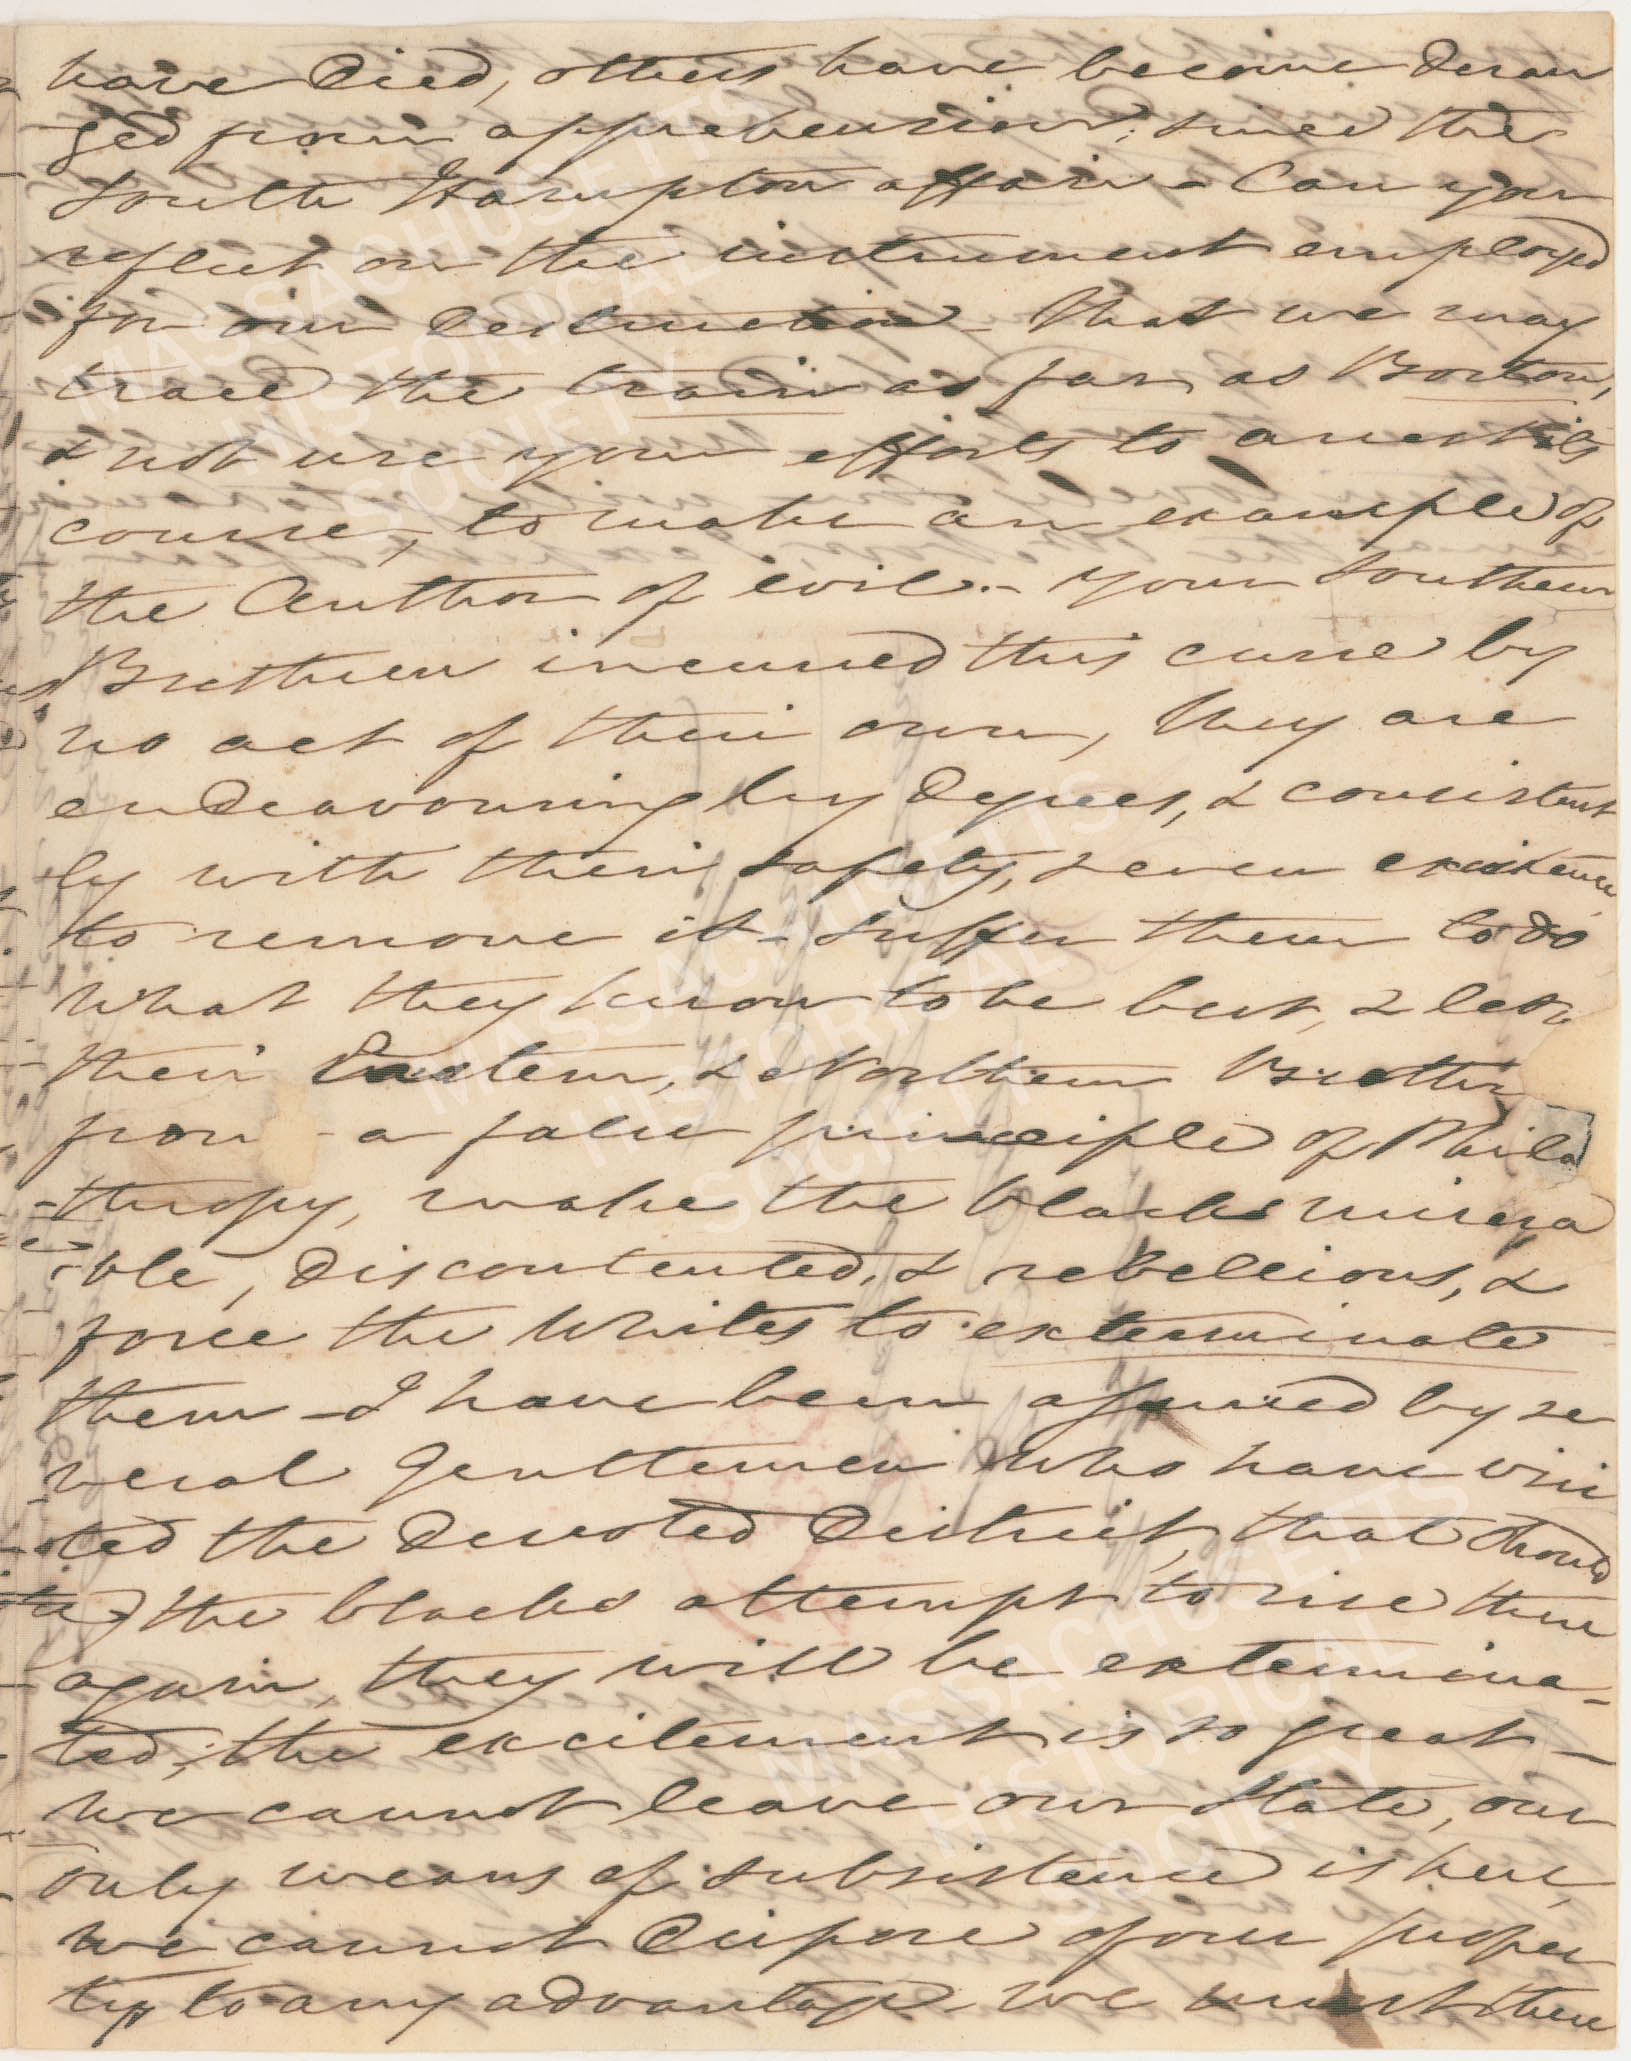 have died, others have become deran
ged from apprehension, since the
South Hampton affair - Can you
reflect on the instrument employed
for our destruction - that we may
trace the train as far as Boston,
& not use your efforts to arrest its
course, to make an example of
the Author of evil. - Your Southern
Brethren incurred this curse by
no act of their own, they are
endeavouring by degrees, & consistent
ly with their safety, & even existence
to remove it - suffer them to do
what they know to be best, & let
their Eastern, & Northern Brethren
from a false principle of Phila
-thropy, make the blacks misera
-ble, discontented, & rebellious, &
force the Whites to exterminate
them - I have been assured by se
veral Gentlemen who have visi
ted the devoted District, that should
the blacks attempt to rise there
again, they will be extermina-
ted, the excitement is so great -
we cannot leave our State, our
only means of subsistence is here,
we cannot dispose of our proper
ty to any advantage - we must then
MASSACHUSETTS
HISTORICAL
SOCIETY
MASSACHUSETTS
HISTORICAL
SOCIETY
MASSACHUSETTS
HISTORICAL
SOCIETY